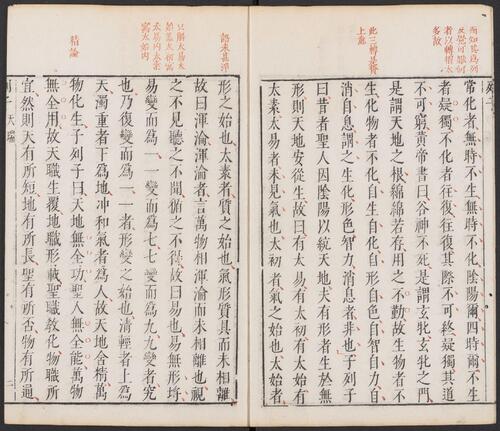 常化者無時不生無時不化陰陽爾四時爾不生
者疑獨不化者往復往復其際不可終疑獨其道
不可窮黃帝書曰谷神不死是謂玄牝玄牝之門
是謂天地之根綿綿若存用之不勤故生物者不
生化物者不化自生自化自形自色自智自力自
消自息謂之生化形色智力消息者非也子列子
曰昔者聖人因陰陽以統天地夫有形者生於無
形則天地安從生故曰有太易有太初有太始有
太素太易者未見氣也太初者氣之始也太始者
此三轉是
上處
形之始也太素者質之始也氣形質具而未相離
故曰渾淪渾淪者言萬物相渾淪而未相離也視
之不見聽之不聞循之不得故曰易也易無形埒
易變而為一一變而為七七變而為九九變者究
也乃復變而為一一者形變之始也清輕者上為
天濁重者下為地冲和氣者為人故天地含精萬
物化生子列子曰天地無全功聖人無全能萬物
無全用故天職生覆地職形載聖職教化物職所
宜然則天有所短地有所長聖有所否物有所通
列子 天瑞
精論